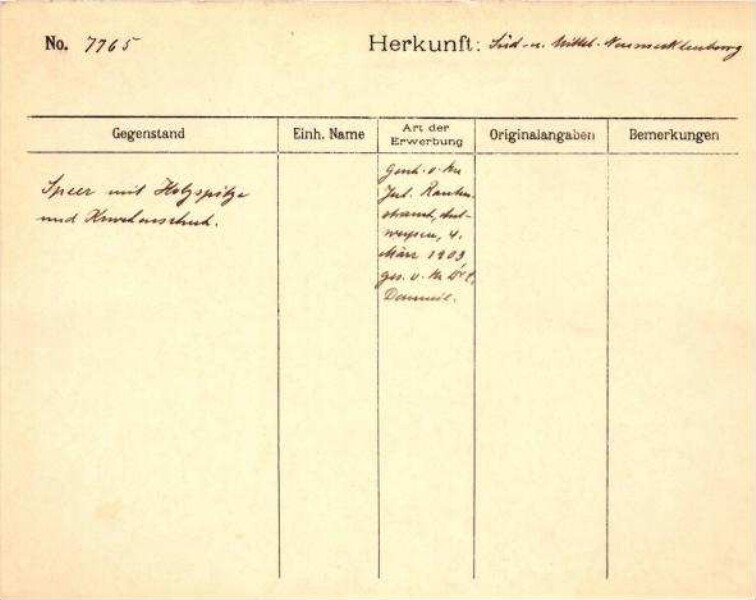 No. 7765 Herkunft: Süd- u. Mittel-Neumecklenburg
Gegenstand Einh. Name Art der Erwerbung Originalangaben Bemerkungen
Speer mit Holzspitze
und Knochenschuh.
Gesch. v. Hn
Jul. Rauten-
strauch, Ant-
werpen, 4.
März 1909
ges. v. Hn
Danneil.